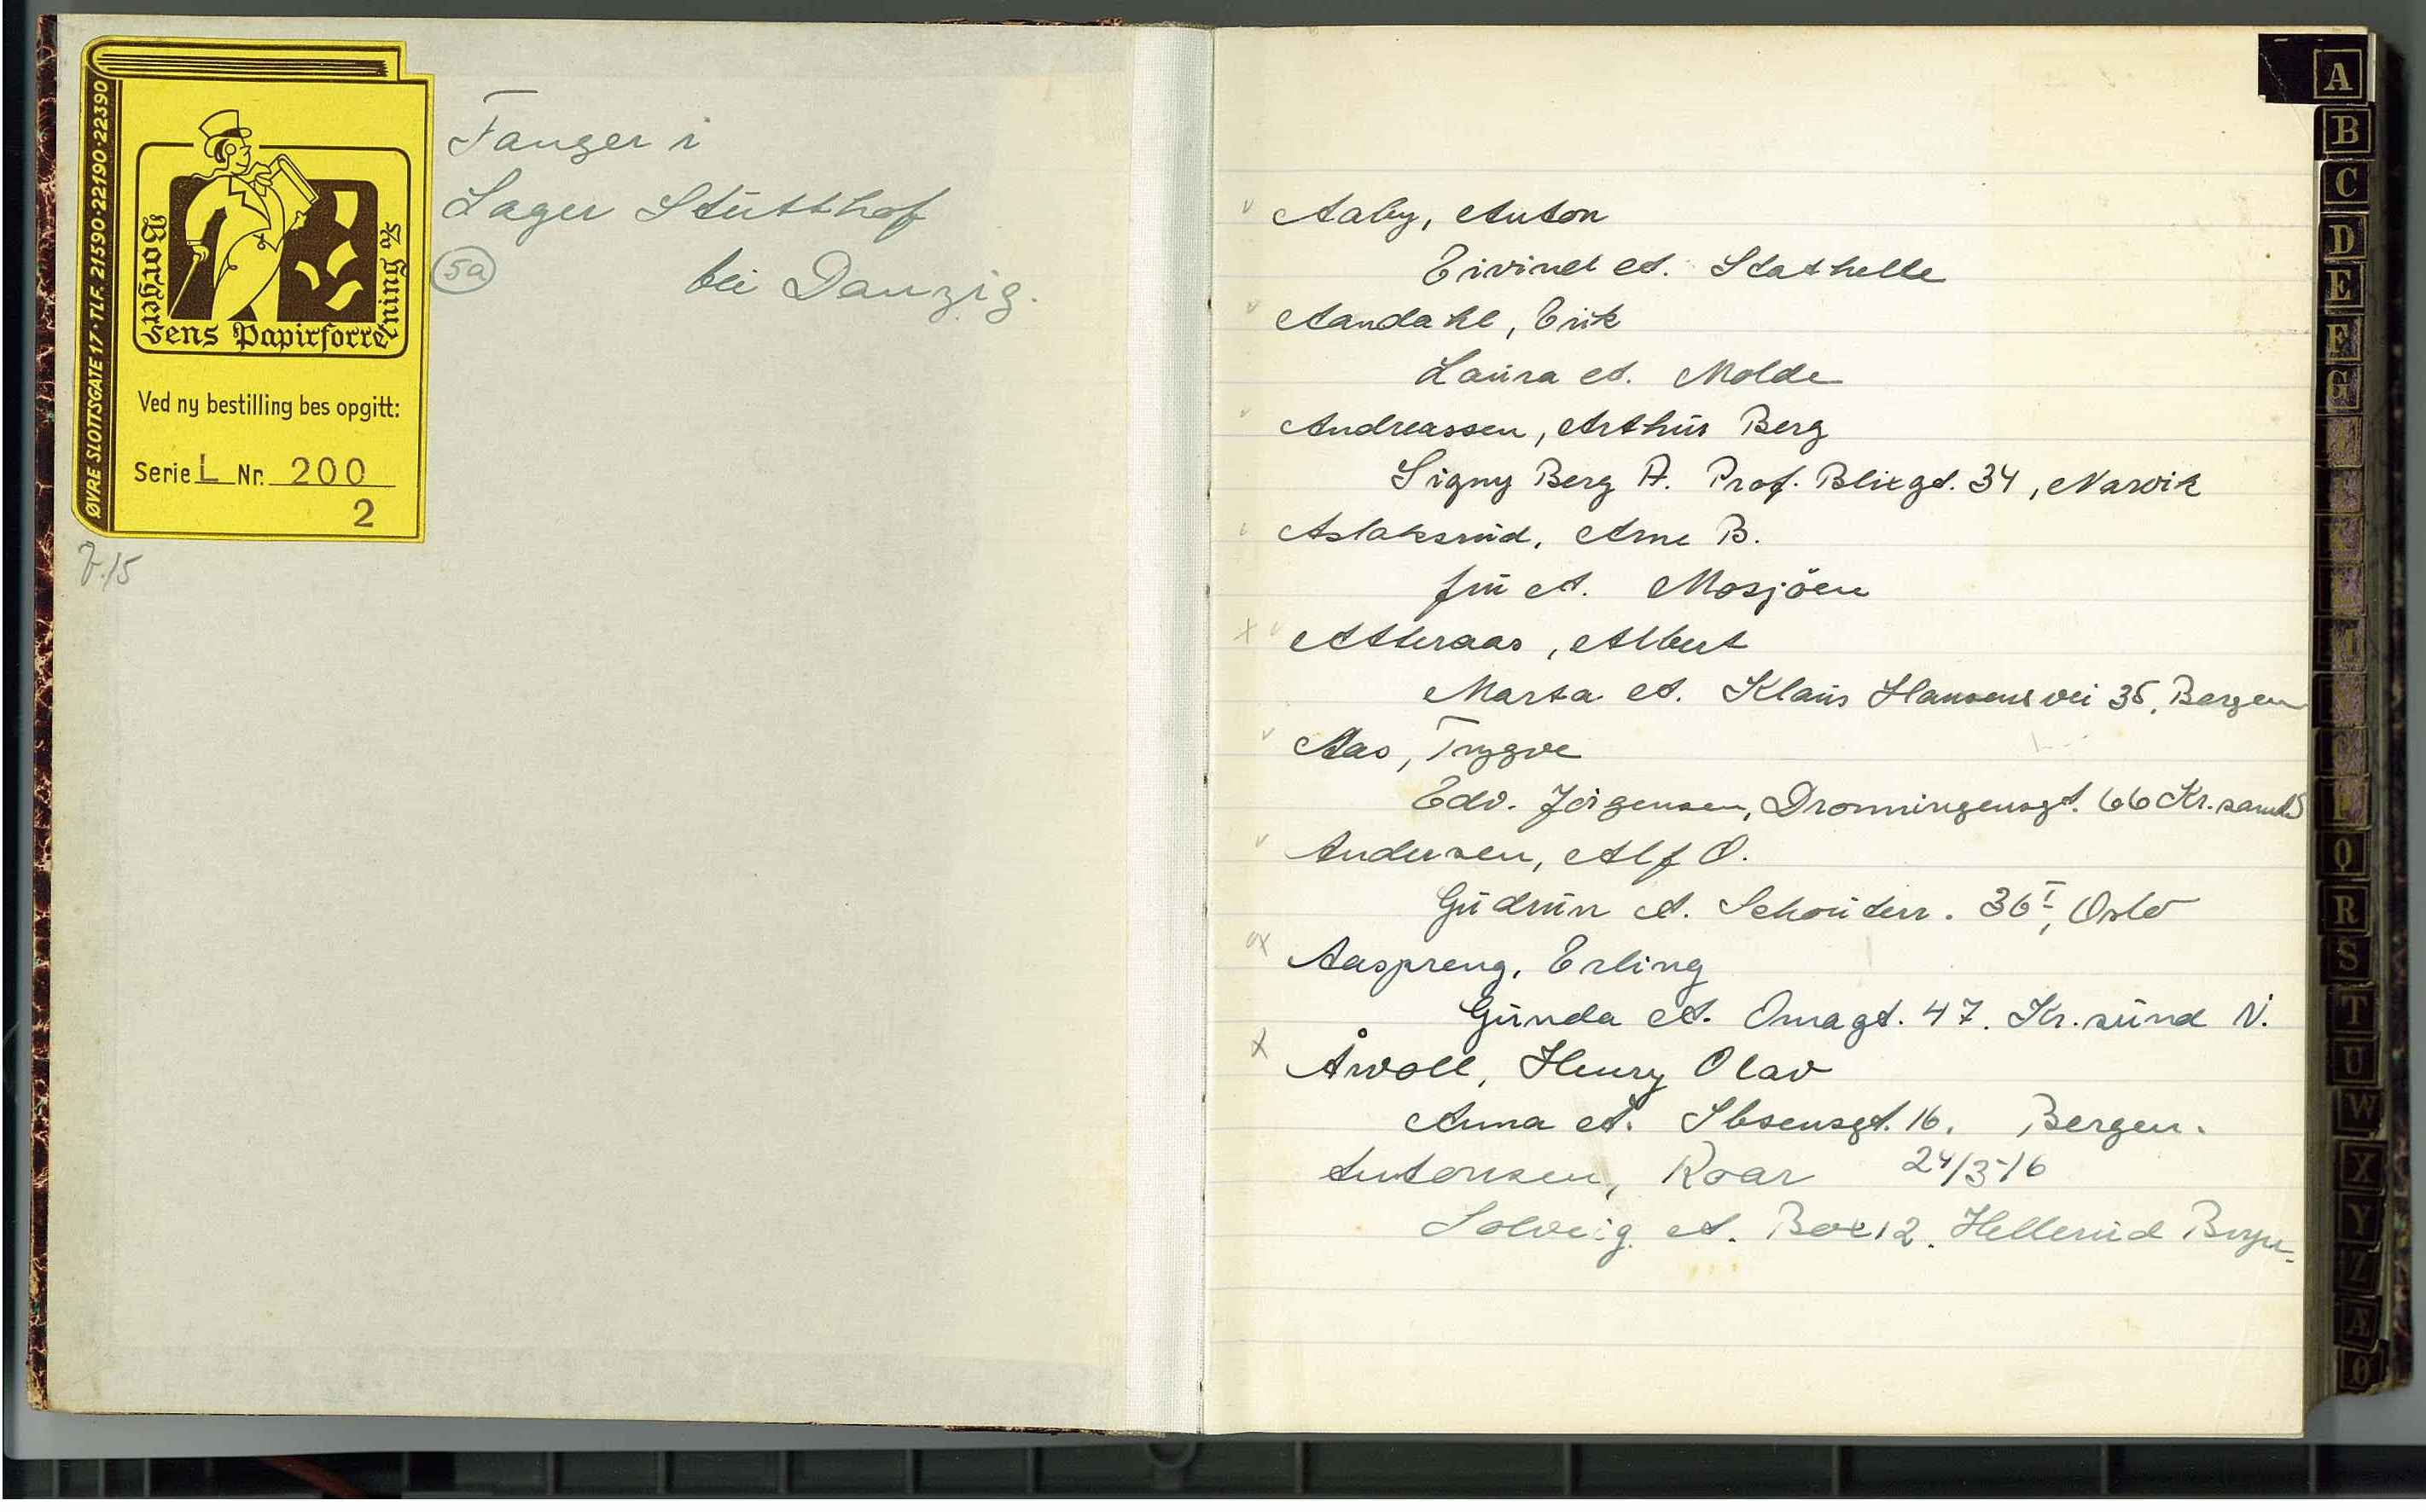 ØVRE SLOTTSGATE 17 · TLF. 21590 · 22190 · 22390
Worgersens Papirforretning %
Ved ny bestilling bes opgitt:
Serie L Nr. 200
2
Fanger i
Lager Stutthof
5a
bei Danzig.
7.15
Aaby, Anton
Eivind A. Stathelle
Aandahl, Erik
Laura A. Molde
Andreassen, Arthur Berg
Signy Berg A. Prof. Blixgt. 34, Narvik
Aslaksrud, Arne B.
fru A. Mosjöen
Alteraas, Albert
Marta A. Klaus Hansens vei 35, Bergen
Aas, Trygve
Edv. Jörgensen, Dronningensgt. 66 Kr.sand S
Andersen, Alf O.
Gudrun A. Schouterr. 36 I, Oslo
Aaspreng, Erling
Gunda A. Omagt. 47. Kr.sund N.
Årvoll, Henry Olav
Anna A. Ibsensgt. 16. Bergen.
Antonsen, Roar 24/3-16
Solveig A. Box 12. Hellerud Bryn.
A
B
C
D
E
F
G
K
M
Q
R
S
T
U
W
X
Y
Z
Æ
Ø